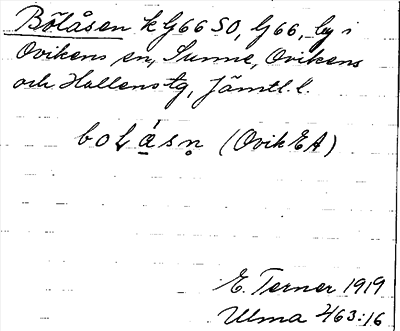 Bölåsen k G66 SO, G66, by i
Ovikens sn, Sunne, Ovikens
och Hallens tg, Jämtl. l.
boḷásṇ (Ovik EA)
E. Terner 1919
Ulma 463:16